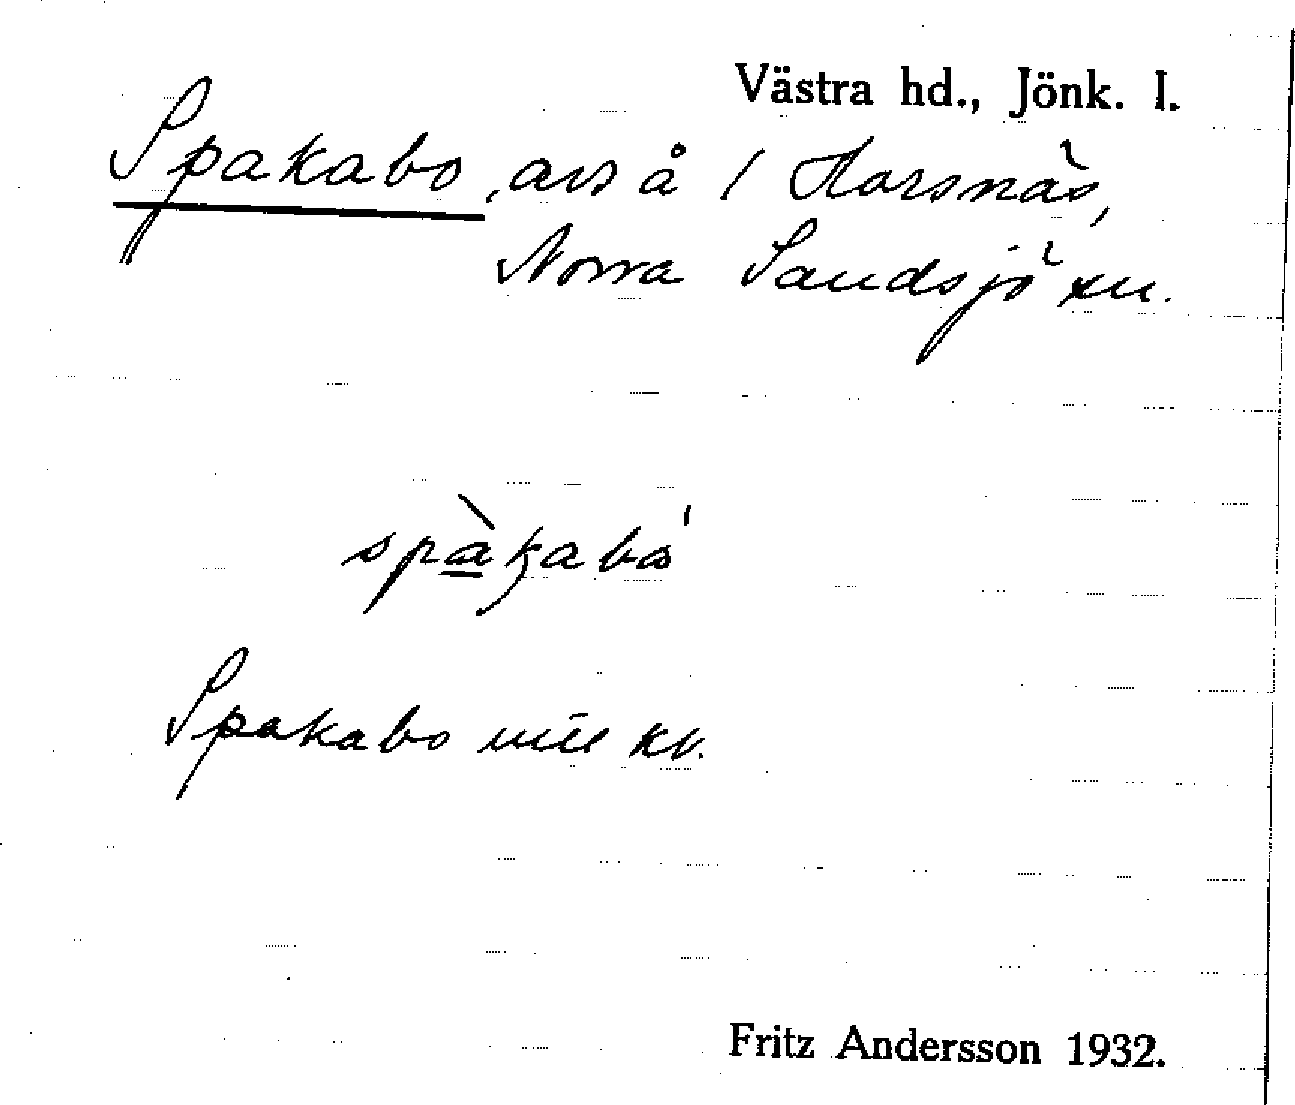 Västra hd., Jönk. l.
Spakabo, avs å 1 Horsnäs,
Norra Sandsjö sn.
spàkabo'
Spakabo mtl kv.
Fritz Andersson 1932.